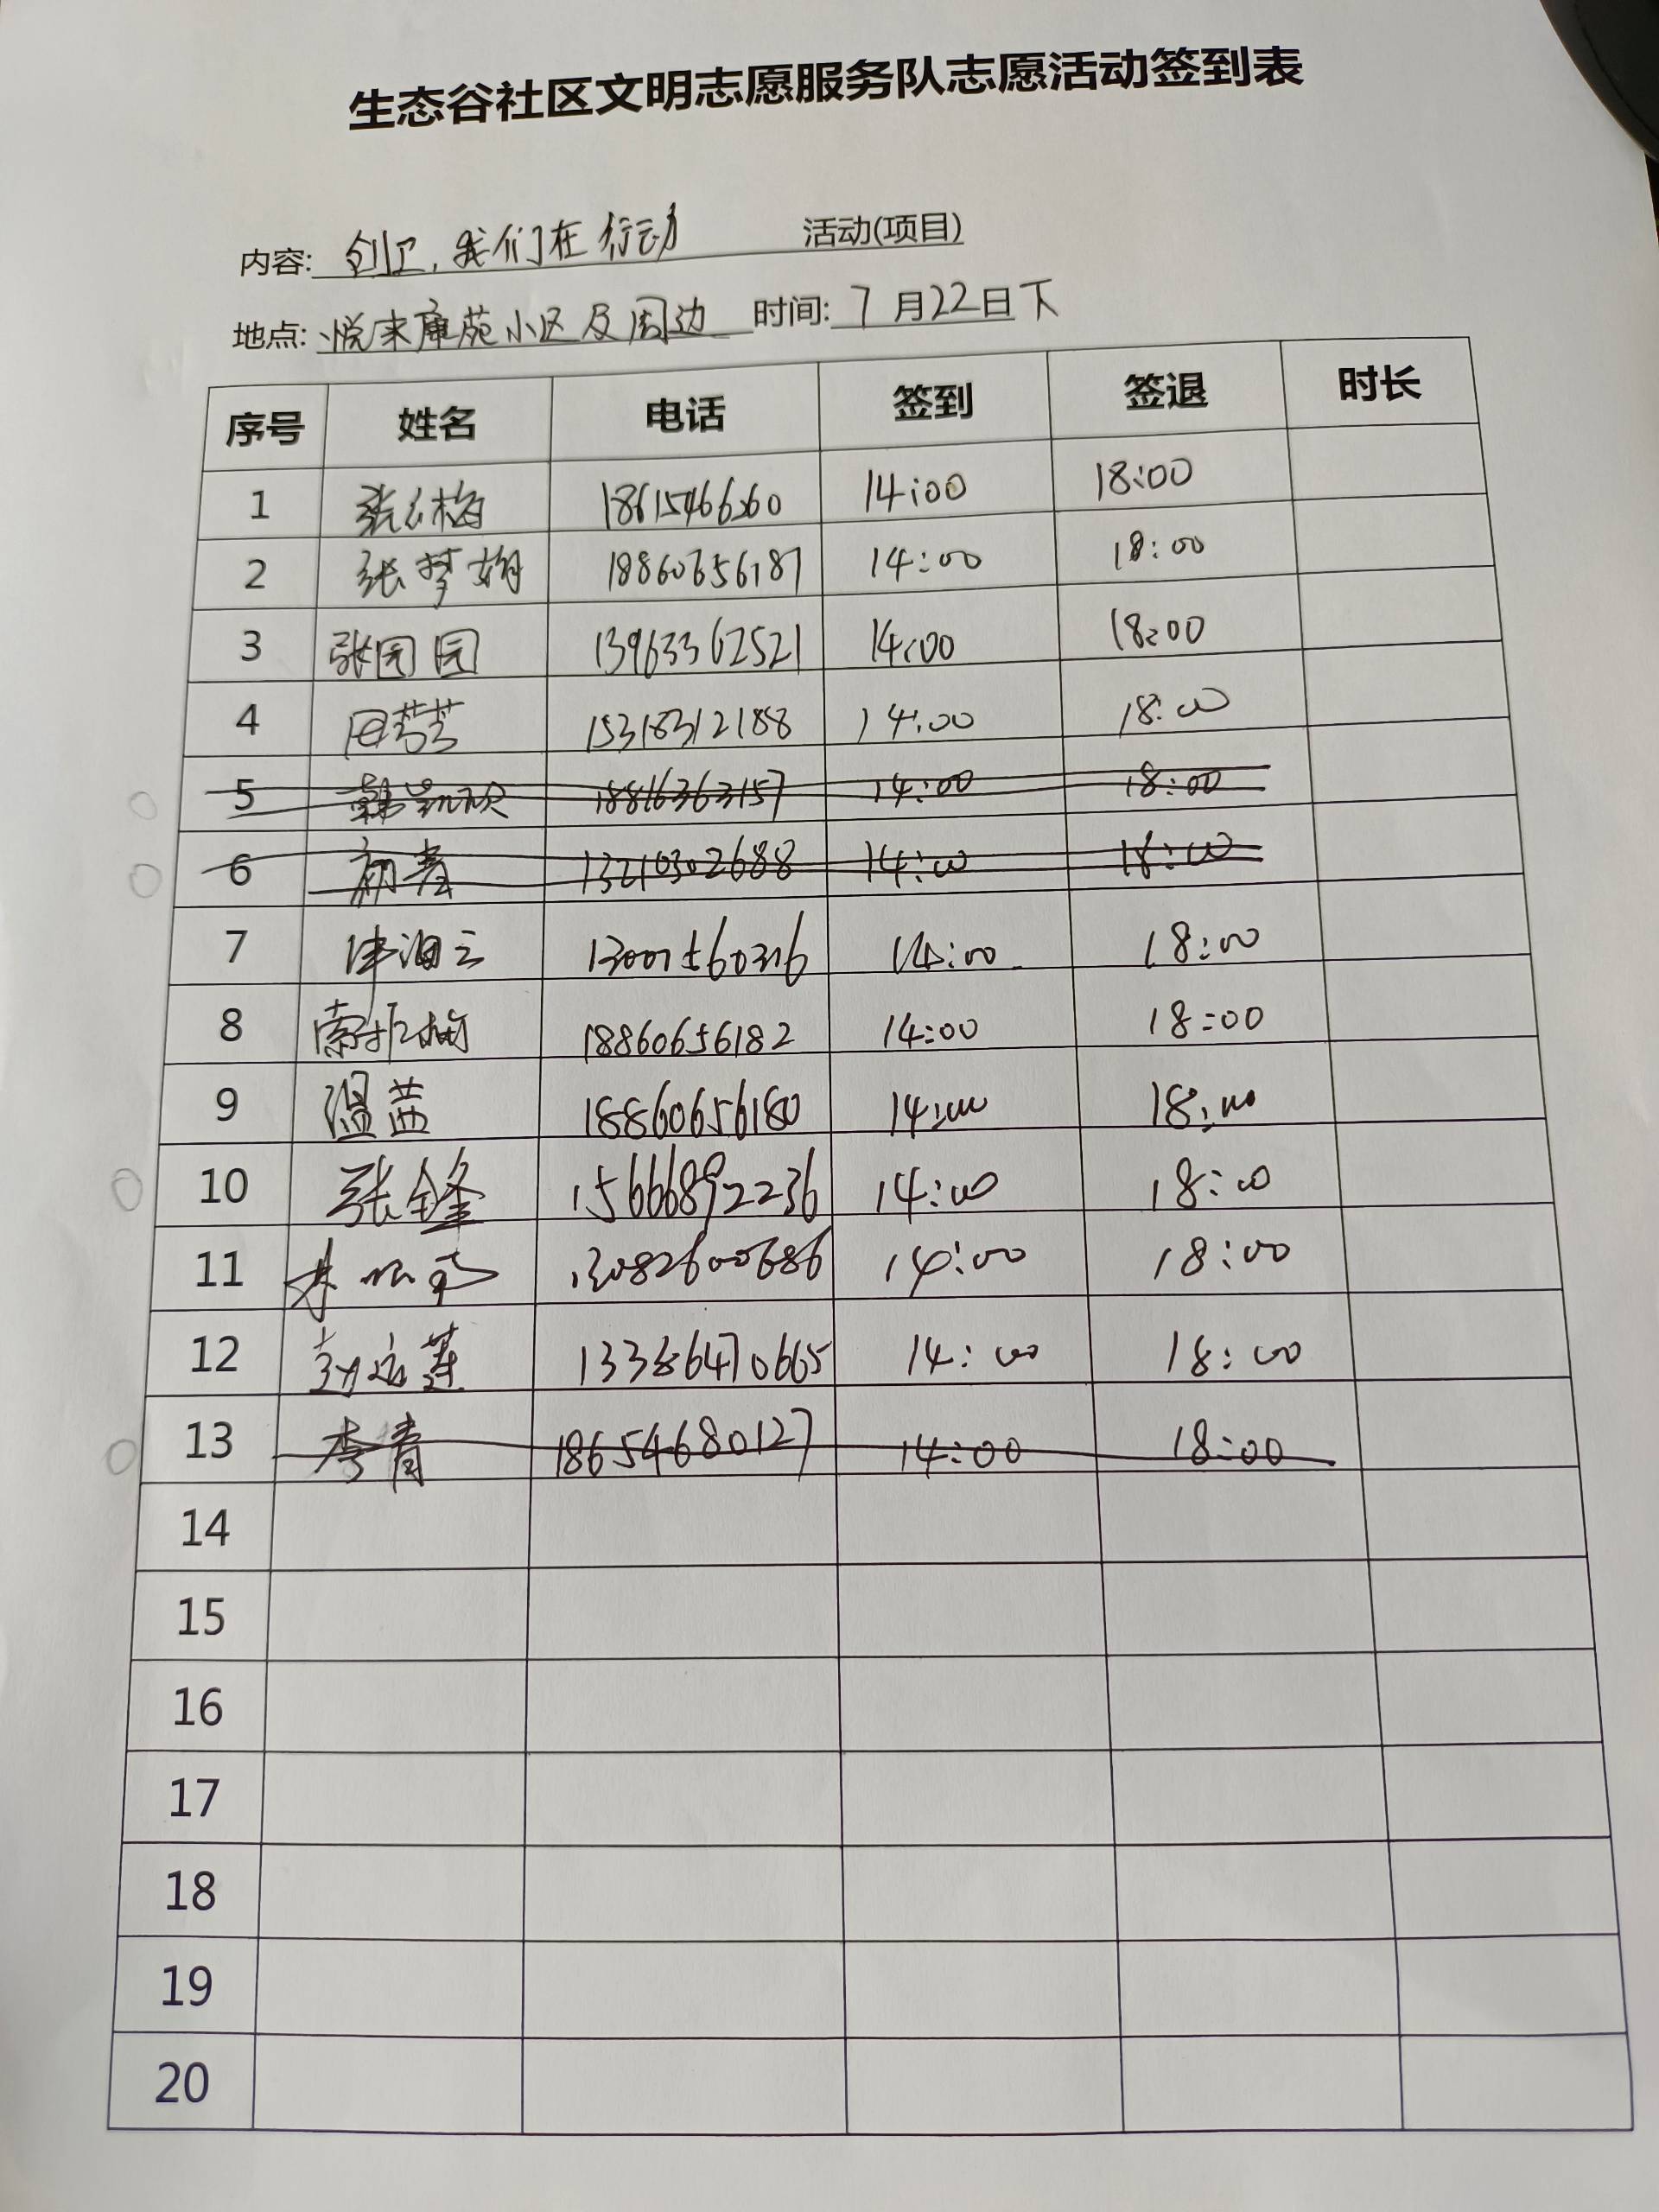 生态谷社区文明志愿服务队志愿活动签到表
内容: 创卫,我们在行动 活动(项目)
地点: 悦来康苑小区及周边 时间: 7月22日下
序号 姓名 电话 签到 签退 时长
1 14:00 18:00
2 张梦娟 18860656187 14:00 18:00
3 张园园 13963362521 14:00 18:00
4 田芩芩 15318312188 14:00 18:00
5 18816363157 14:00 18:00
6 13210302688 14:00 18:00
7 14:00 18:00
8 18860656182 14:00 18:00
9 温茜 18860656180 14:00 18:00
10 张锋 15666892236 14:00 18:00
11 14:00 18:00
12 14:00 18:00
13 李青 18654680127 14:00 18:00
14
15
16
17
18
19
20